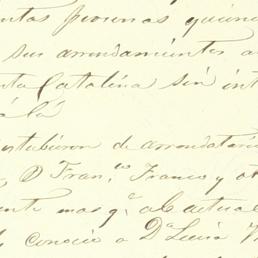 ntas personas quienes
sus arrendamientos a
nta Catalina sin int
alá
estubieron de arrendatari
D Fran.co Franco y ot
ente mas q.e al actual
conocio a D.a Lucia